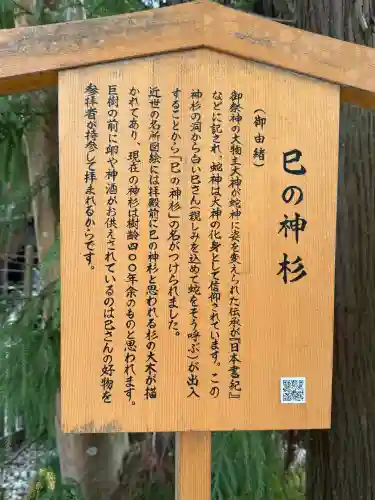 巳の神杉
(御由緒)
御祭神の大物主大神が蛇神に姿を変えられた伝承が『日本書紀』
などに記され、蛇神は大神の化身として信仰されています。この
神杉の洞から白い巳さん(親しみを込めて蛇をそう呼ぶ)が出入
することから『巳の神杉』の名がつけられました。
近世の名所図絵には拝殿前に巳の神杉と思われる杉の大木が描
かれてあり、現在の神杉は樹齢四〇〇年余のものと思われます。
巨樹の前に卵や神酒がお供えされているのは巳さんの好物を
参拝者が持参して拝まれるからです。